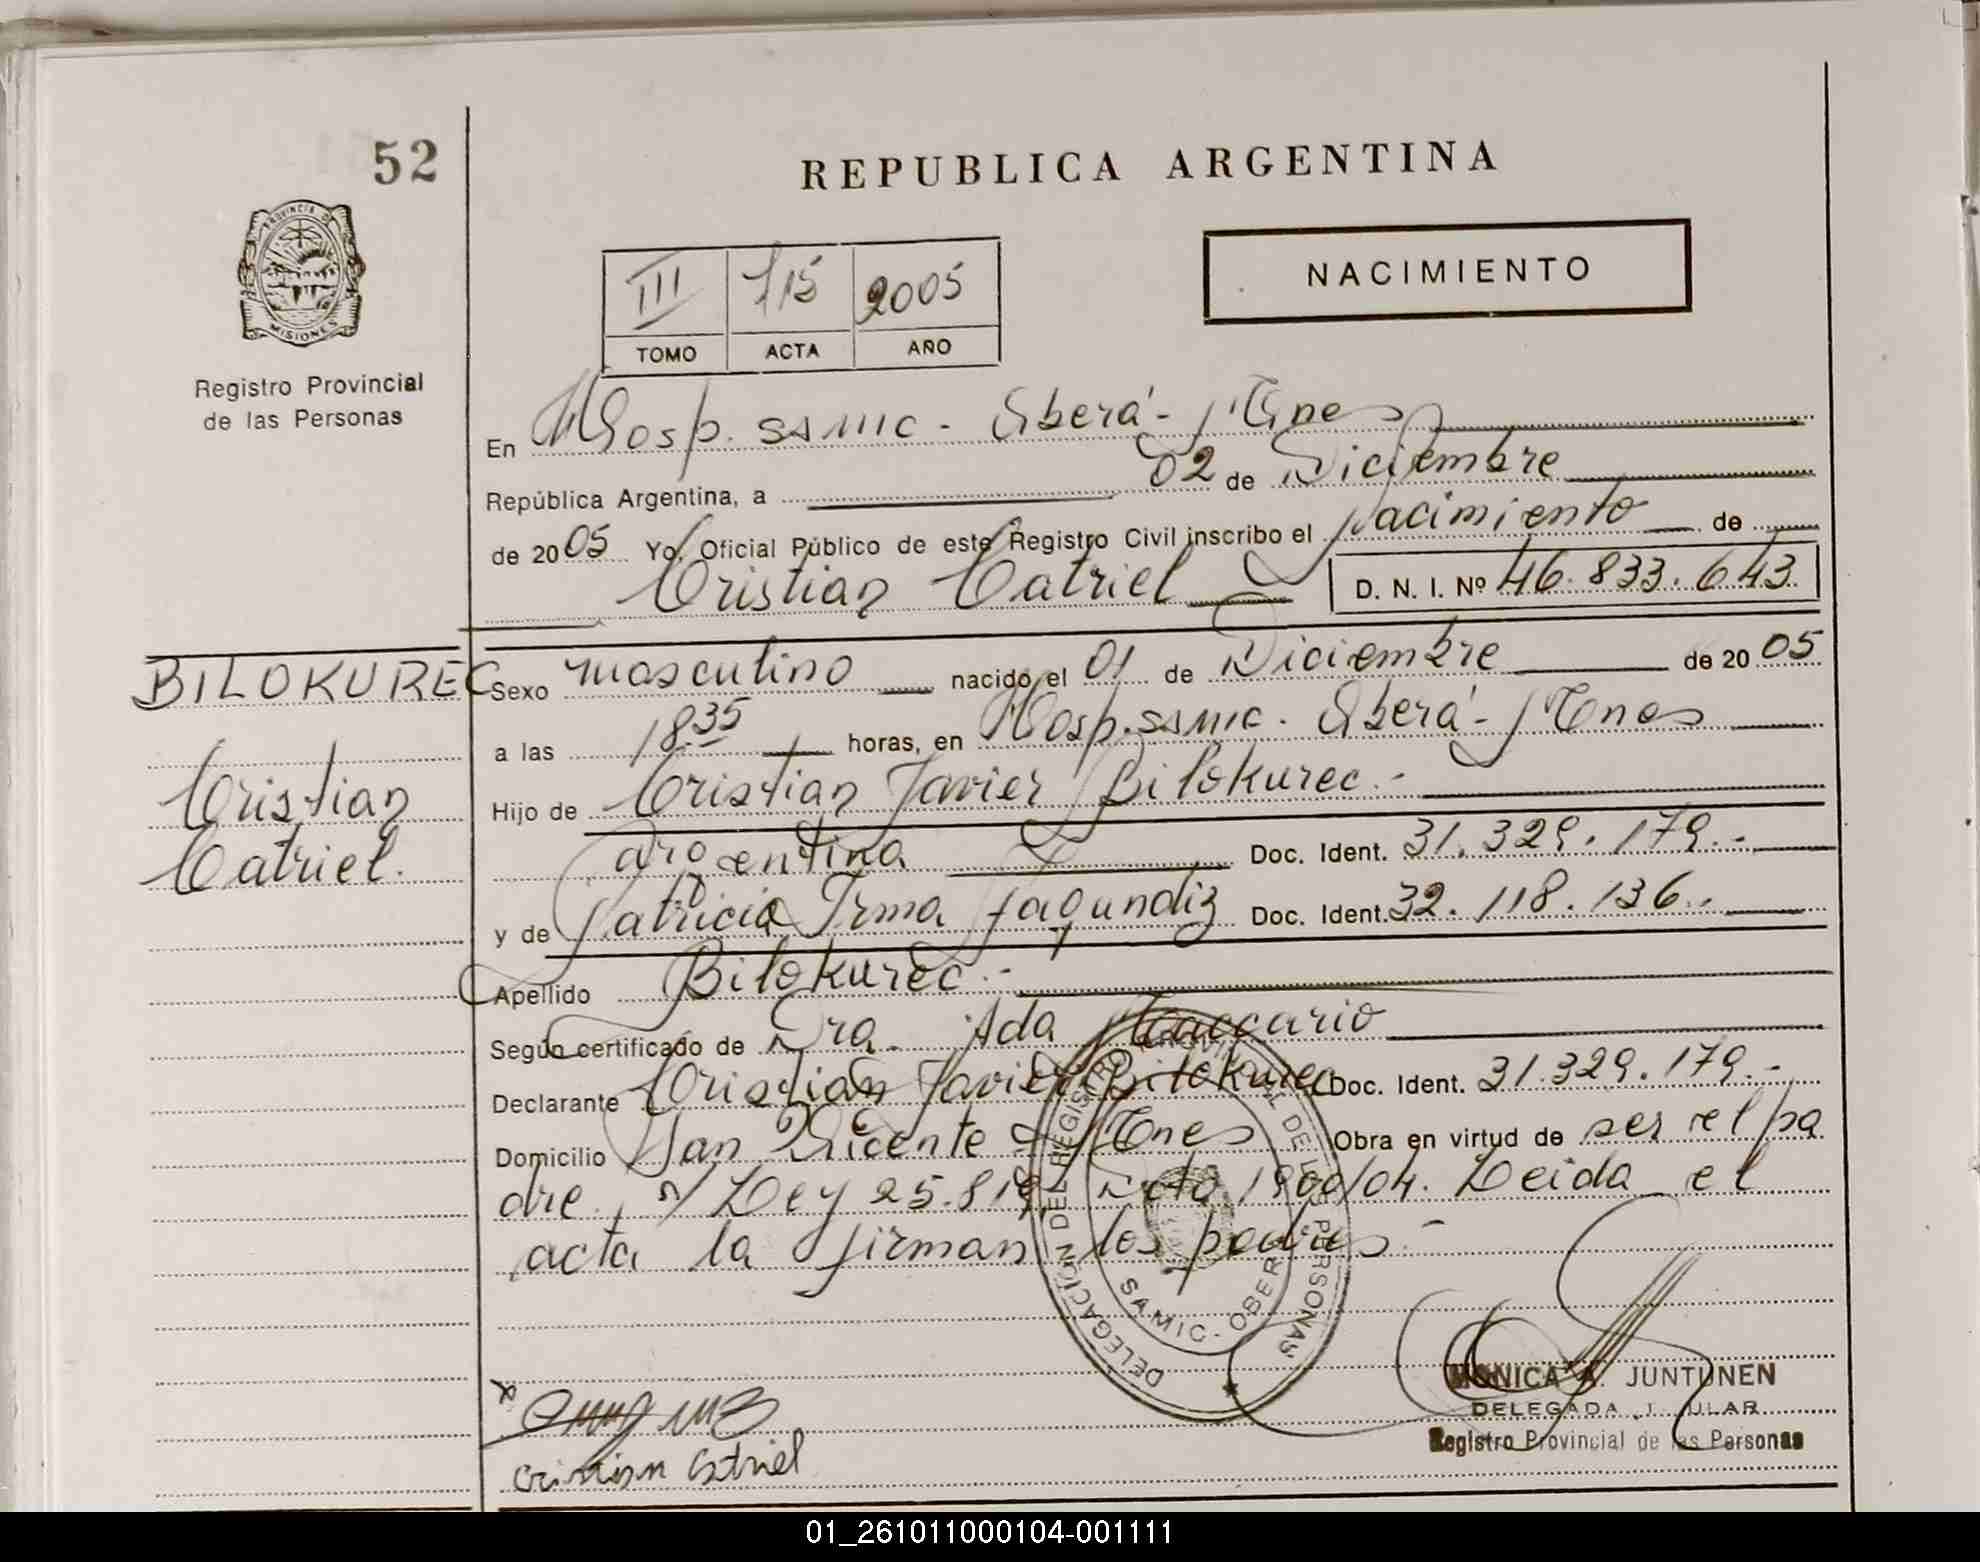 52
REPUBLICA ARGENTINA
PROVINCIA D
MISIONES
Registro Provincial
de las Personas
III 715 2005
TOMO ACTA AÑO
NACIMIENTO
En Hosp. SAMIC - Oberá - Mnes
República Argentina, a 02 de Diciembre
de 2005 Yo, Oficial Público de este Registro Civil inscribo el Nacimiento de
Cristian Catriel D. N. I. Nº 46.833.643
BILOKUREC
Cristian
Catriel.
Sexo masculino nacido el 01 de Diciembre de 2005
a las 18.35 horas, en Hosp. SAMIC. Oberá - Mnes
Hijo de Cristian Javier Bilokurec.-
argentina Doc. Ident. 31.329.179.-
y de Patricia Irma Fagundiz Doc. Ident. 32.118.136.-
Apellido Bilokurec.-
Según certificado de Dra. Ada Maccario
Declarante Cristian Javier Bilokurec Doc. Ident. 31.329.179.-
Domicilio San Vicente - Mnes Obra en virtud de ser el pa
dre, s/ Ley 25.819, Dcto 1900/04. Leida el
acta la firman los padres.-
DELEGACIÓN DEL REGISTRO PROVINCIAL DE LAS PERSONAS
SAMIC - OBERA
MONICA A. JUNTUNEN
DELEGADA TITULAR
Registro Provincial de las Personas
Cristian Catriel
01_261011000104-001111